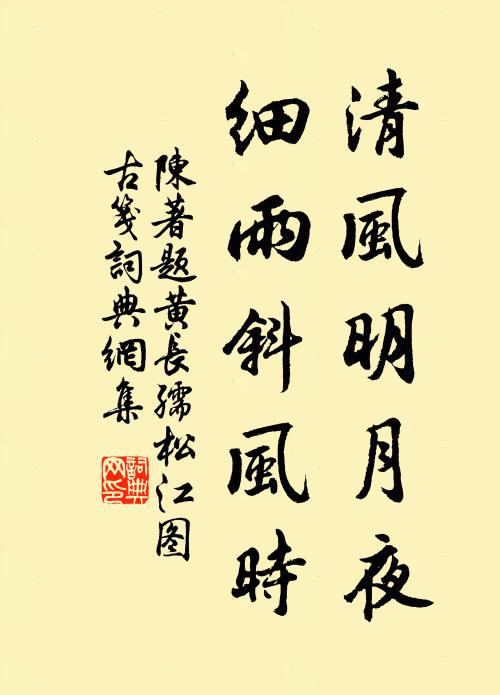 清風明月夜
細雨斜風時
陳著題黄長孺松江图
古箋詞典網集
詞典网印